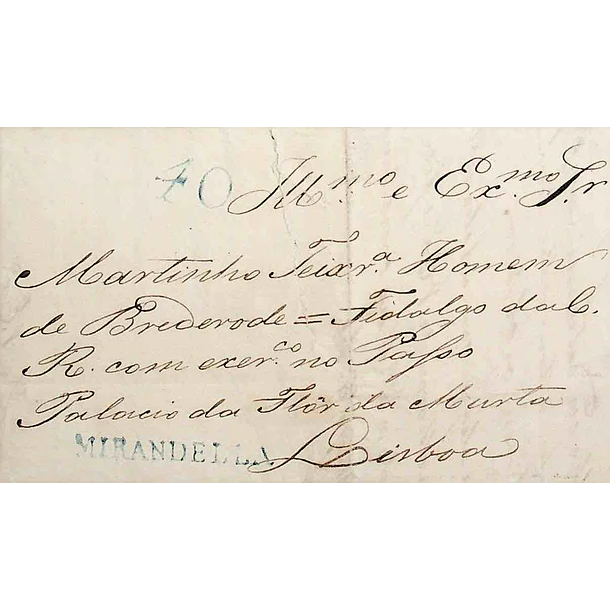 40 Ill.mo e Ex.mo Sr
Martinho Teixr.a Homem
de Brederode = Fidalgo da C.
R. com exer.co no Passo
Palacio da Flôr da Murta
MIRANDELLA Lisboa